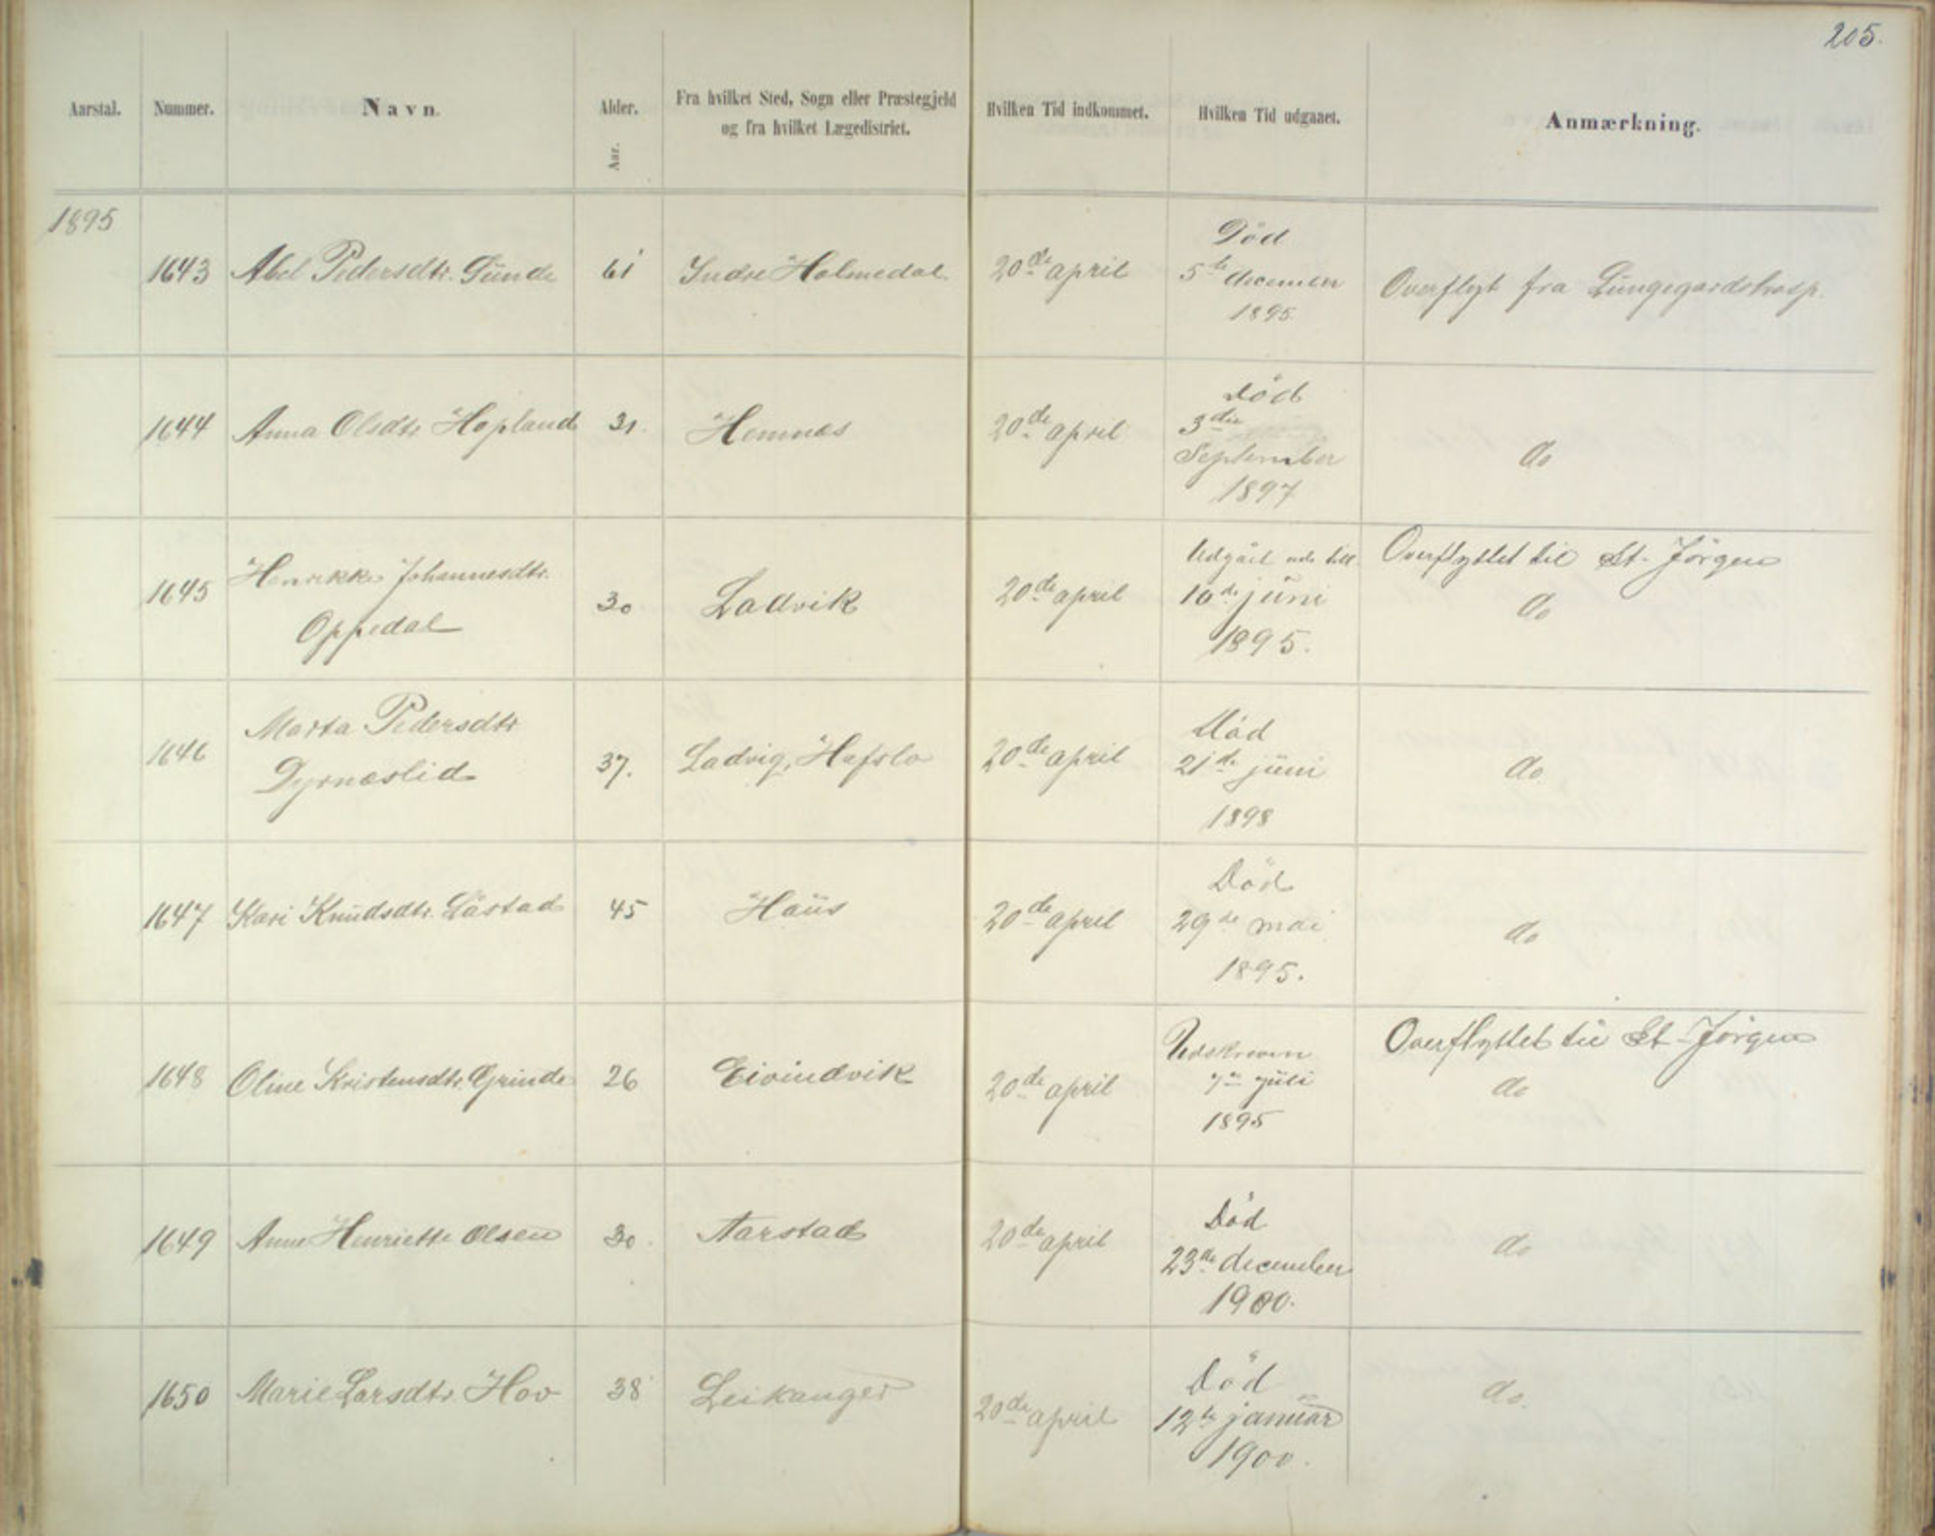 205.
Aarstal. Nummer. Navn. Alder. Fra hvilket Sted, Sogn eller Præstegjeld Hvilken Tid indkommet. Hvilken Tid udgaaet. Anmærkning.
og fra hvilket Lægedistrict.
Aar.
1895
Død
1643 Abel Pedersdtr. Sünde 61 Indre Holmedal 20de april 5te decemen Overflyt fra Lüngegaardshosp.
1895
Død
1644 Anna Olsdtr Hopland 31. Hemnæs 20de april 3die do
September
1897
Henrikke Johannesdtr. Udgåt Overflyttet til St. Jörgen
1645 Oppedal 30 Ladvik 20de april 10de jüni do
1895.
Marta Pedersdtr Död
1646 Dyrnæslid 37. Ladvig, Hafslo 20de april 21de jüni do
1898
Död
1647 Kari Knüdsdtr. Låstad 45 Haüs 20de april 29de mai do
1895.
Udskreven Overflyttet til St. Jörgen
1648 Oline Kristensdtr. Grinde 26 Eivindvik 20de april 7de jüli do
1895
Död
1649 Anne Henriette Olsen 30. Aarstad 20de april 23de december do
1900.
Död
1650 Marie Larsdtr. Hov 38 Leikanger 20de april 12te janüar do.
1900.